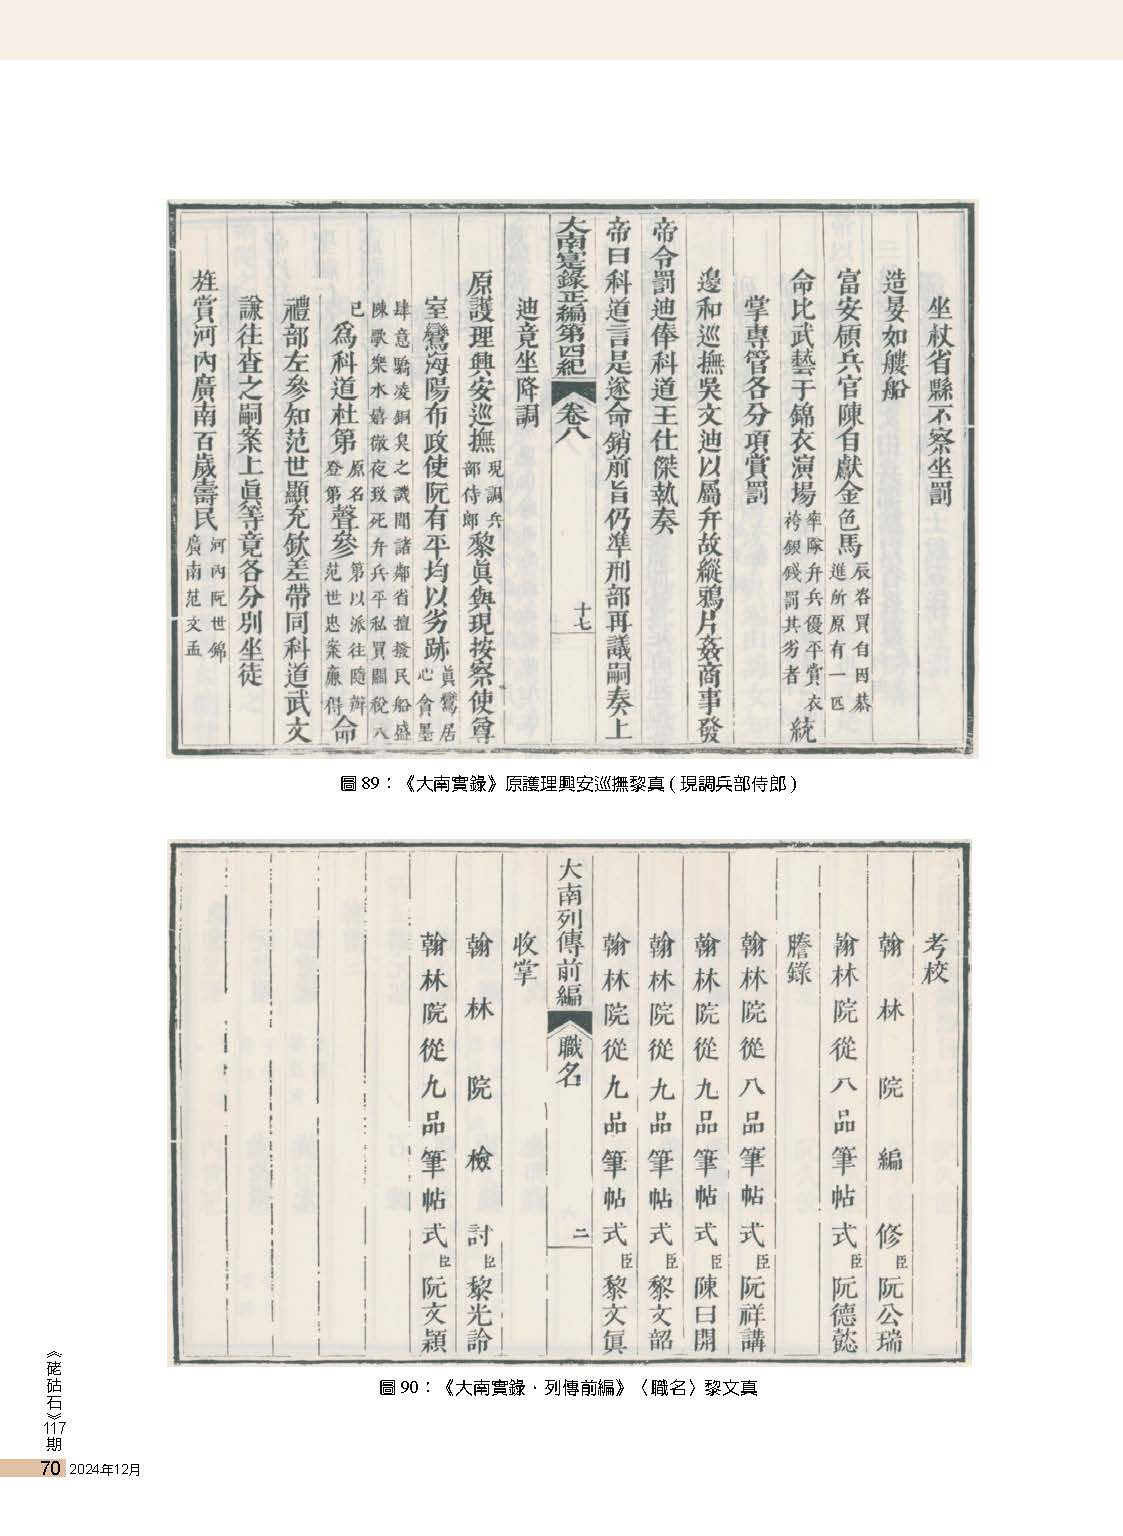 坐杖省縣不察坐罰
造晏如艛船
富安領兵官陳自獻金色馬辰沓買自因恭進所原有一匹
命比武藝于錦衣演場率隊弁兵優平賞衣袴銀錢罰其劣者統
掌專管各分項賞罰
邊和巡撫吳文迪以屬弁故縱鴉片姦商事發
帝令罰迪俸科道王仕傑執奏
帝曰科道言是遂命銷前旨仍準刑部再議嗣奏上
大南寔錄正編第四紀 卷八 十七
迪竟坐降調
原護理興安巡撫現調兵部侍郎黎眞與現按察使尊
室鸞海陽布政使阮有平均以劣跡眞鸞居心貪墨
肆意驕凌銅臭之譏聞諸鄰省擅撥民船盛陳歌樂水嬉徹夜致死弁兵平私買關稅八
已為科道杜第原名登第聲參第以派往隨辦范世忠案廉得命
禮部左參知范世顯充欽差帶同科道武文
謙往查之嗣案上眞等竟各分別坐徒
旌賞河內廣南百歲壽民河內阮世錦廣南范文孟
圖 89：《大南實錄》原護理興安巡撫黎真 ( 現調兵部侍郎 )
考校
翰林院編修臣阮公瑞
翰林院從八品筆帖式臣阮德懿
謄錄
翰林院從八品筆帖式臣阮祥講
翰林院從九品筆帖式臣陳曰開
翰林院從九品筆帖式臣黎文韶
翰林院從九品筆帖式臣黎文眞
大南列傳前編 職名 二
收掌
翰林院檢討臣黎光論
翰林院從九品筆帖式臣阮文穎
圖 90：《大南實錄．列傳前編》〈職名〉黎文真
《硓𥑮石》117期
70 2024年12月